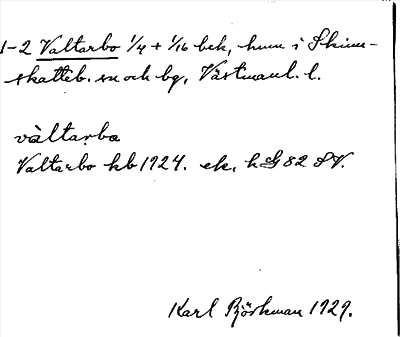 1-2 Valtarbo 1/4 + 1/16 bek, hmn i Skinn-
skatteb. sn och bg, Västmanl. l.
vàltarba
Valtarbo kb 1924. ek, hG 82 SV.
Karl Björkman 1929.